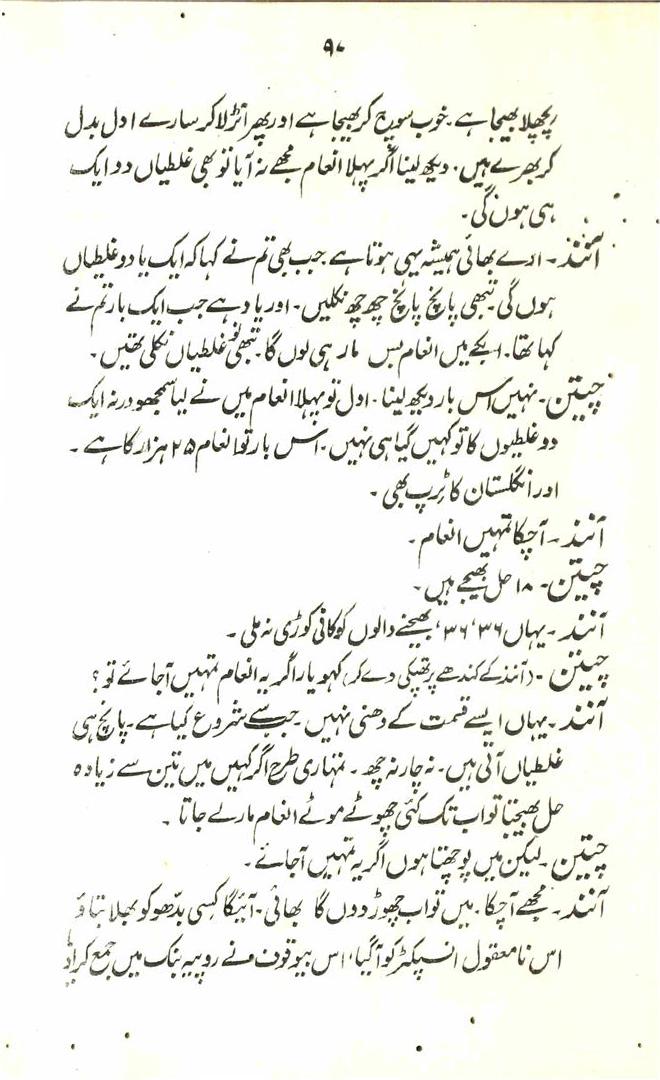 ۹۷
پچھلا بھیجا ہے۔ خوب سوچ کر بھیجا ہے اور پھر لڑا کر سارے ادل بدل
کر بھرے ہیں۔ دیکھ لینا اگر پہلا انعام مجھے نہ آیا تو بھی غلطیاں دو ایک
ہی ہوں گی۔
آنند۔ ارے بھائی ہمیشہ یہی ہوتا ہے جب بھی تم نے کہا کہ ایک یا دو غلطیاں
ہوں گی۔ تبھی پانچ پانچ چھ چھ نکلیں۔ اور یاد ہے جب ایک بار تم نے
کہا تھا۔ ابکے میں انعام بس مار ہی لوں گا۔ تبھی غلطیاں نکلی تھیں۔
چیتن۔ نہیں اس بار دیکھ لینا۔ اول تو پہلا انعام میں نے لیا سمجھو ورنہ ایک
دو غلطیوں کا تو کہیں گیا ہی نہیں۔ اس بار تو انعام ۲۵ ہزار کا ہے۔
اور انگلستان کا ٹرپ بھی۔
آنند۔ آچکا تمہیں انعام۔
چیتن۔ ۱۸ حل بھیجے ہیں۔
آنند۔ یہاں ۳۶، ۳۶، بھیجنے والوں کو کافی کوڑی نہ ملی۔
چیتن۔ (آنند کے کندھے پر تھپکی دے کر) کہو یار اگر یہ انعام تمہیں آجائے تو؟
آنند۔ یہاں ایسے قسمت کے دھنی نہیں۔ جب سے شروع کیا ہے۔ پانچ ہی
غلطیاں آتی ہیں۔ نہ چار نہ چھ۔ تمہاری طرح اگر کہیں میں تین سے زیادہ
حل بھیجتا تو اب تک کئی چھوٹے موٹے انعام مار لے جاتا۔
چیتن۔ لیکن میں پوچھتا ہوں اگر یہ تمہیں آجائے۔
آنند۔ مجھے آچکا۔ میں تو اب چھوڑ دوں گا بھائی۔ آئیگا کسی بدھو کو بھلا بتاؤ
اس نامعقول انسپکٹر کو آگیا، اس بیوقوف نے روپیہ بنک میں جمع کرا